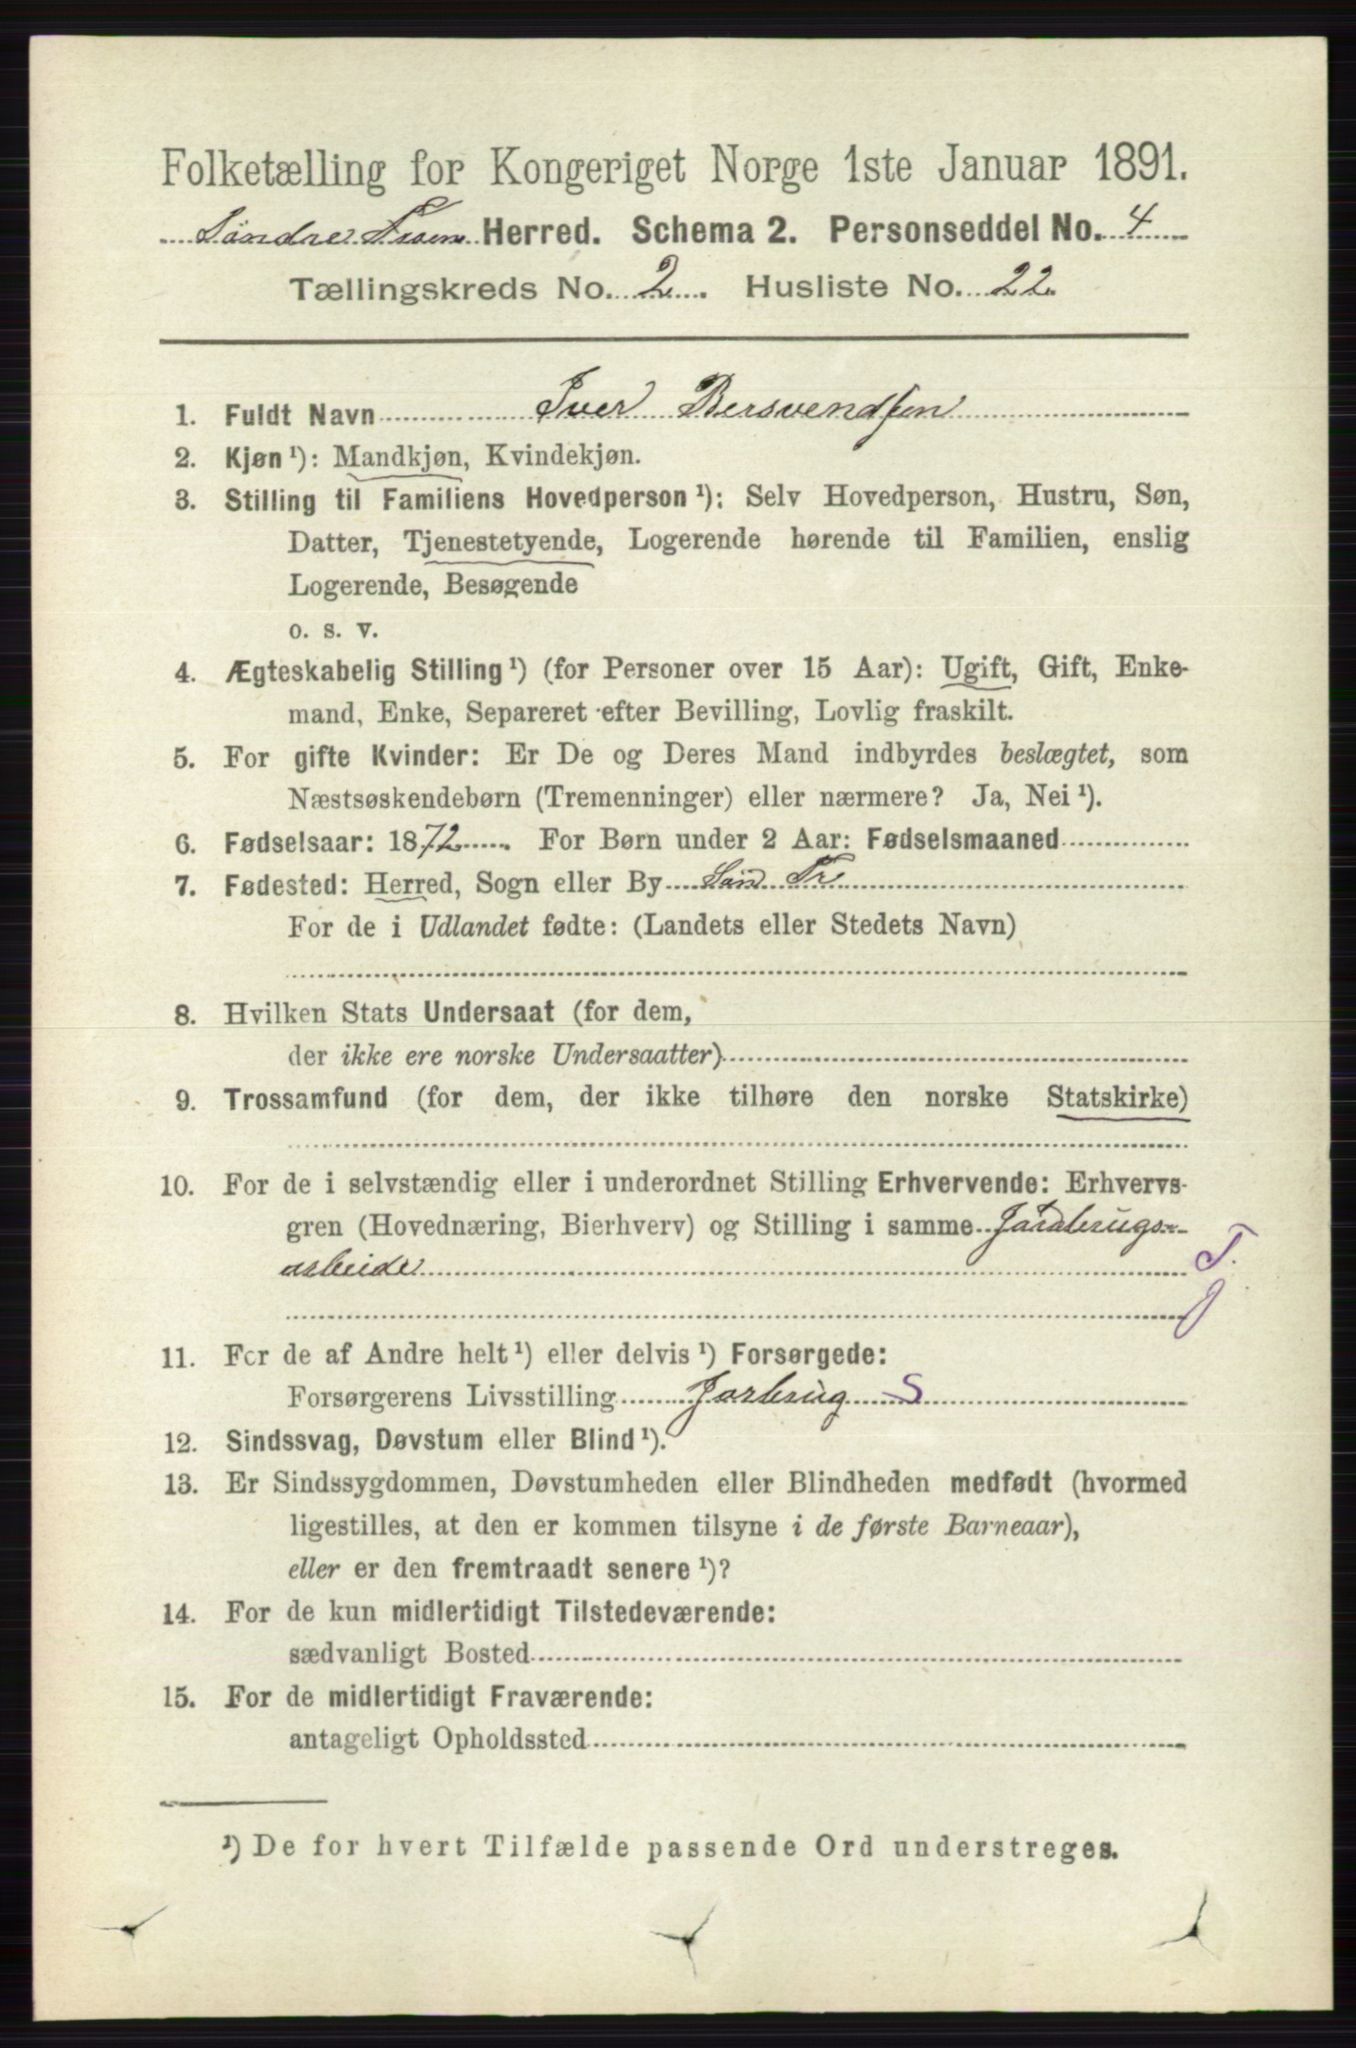 Folketælling for Kongeriget Norge 1ste Januar 1891.
Søndre Fron Herred. Schema 2. Personseddel No. 4
Tællingskreds No. 2. Husliste No. 22
1. Fuldt Navn Iver Bersvendsen
2. Kjøn ¹): Mandkjøn, Kvindekjøn.
3. Stilling til Familiens Hovedperson ¹): Selv Hovedperson, Hustru, Søn,
Datter, Tjenestetyende, Logerende hørende til Familien, enslig
Logerende, Besøgende
o. s. v.
4. Ægteskabelig Stilling ¹) (for Personer over 15 Aar): Ugift, Gift, Enke-
mand, Enke, Separeret efter Bevilling, Lovlig fraskilt.
5. For gifte Kvinder: Er De og Deres Mand indbyrdes beslægtet, som
Næstsøskendebørn (Tremenninger) eller nærmere? Ja, Nei ¹).
6. Fødselsaar: 1872. For Børn under 2 Aar: Fødselsmaaned
7. Fødested: Herred, Sogn eller By Sön Fr
For de i Udlandet fødte: (Landets eller Stedets Navn)
8. Hvilken Stats Undersaat (for dem,
der ikke ere norske Undersaatter)
9. Trossamfund (for dem, der ikke tilhøre den norske Statskirke)
10. For de i selvstændig eller i underordnet Stilling Erhvervende: Erhvervs-
gren (Hovednæring, Bierhverv) og Stilling i samme Jordbrugs-
arbeide T.
J
11. For de af Andre helt ¹) eller delvis ¹) Forsørgede:
Forsørgerens Livsstilling Jorbrug S
12. Sindssvag, Døvstum eller Blind ¹).
13. Er Sindssygdommen, Døvstumheden eller Blindheden medfødt (hvormed
ligestilles, at den er kommen tilsyne i de første Barneaar),
eller er den fremtraadt senere ¹)?
14. For de kun midlertidigt Tilstedeværende:
sædvanligt Bosted
15. For de midlertidigt Fraværende:
antageligt Opholdssted
¹) De for hvert Tilfælde passende Ord understreges.